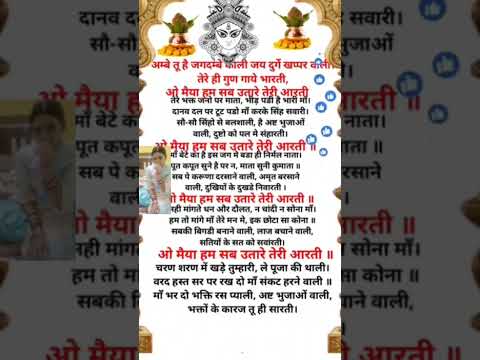 अम्बे तू है जगदम्बे काली जय दुर्गे खप्पर वाली।
तेरे ही गुण गाये भारती,
ओ मैया हम सब उतारे तेरी आरती
तेरे भक्त जनो पर माता, भीड़ पडी है भारी माँ।
दानव दल पर टूट पडो माँ करके सिंह सवारी।
सौ-सौ सिंहो से बलशाली, है अष्ट भुजाओं
वाली, दुष्टो को पल मे संहारती।
ओ मैया हम सब उतारे तेरी आरती ॥
माँ बेटे का है इस जग मे बडा ही निर्मल नाता।
पूत कपूत सुने है पर न, माता सुनी कुमाता ॥
सब पे करूणा दरसाने वाली, अमृत बरसाने
वाली, दुखियों के दुखडे निवारती ।
ओ मैया हम सब उतारे तेरी आरती ॥
नही मांगते धन और दौलत, न चांदी न सोना माँ।
हम तो मांगे माँ तेरे मन मे, इक छोटा सा कोना ॥
सबकी बिगडी बनाने वाली, लाज बचाने वाली,
सतियों के सत को सवांरती।
ओ मैया हम सब उतारे तेरी आरती ॥
चरण शरण में खड़े तुम्हारी, ले पूजा की थाली।
वरद हस्त सर पर रख दो माँ संकट हरने वाली ॥
माँ भर दो भक्ति रस प्याली, अष्ट भुजाओं वाली,
भक्तों के कारज तू ही सारती।
दानव द
सौ-सौ
वाल
ओ मैया
माँ बेटे
पूत कपूत
सब पे क
वाली
ओ मैया
नही मांग
हम तो म
सबकी
सवारी।
भुजाओं
आरती ॥
नाता।
कुमाता ॥
बरसाने
रती ।
आरती ॥
सोना माँ।
कोना ॥
वाली,